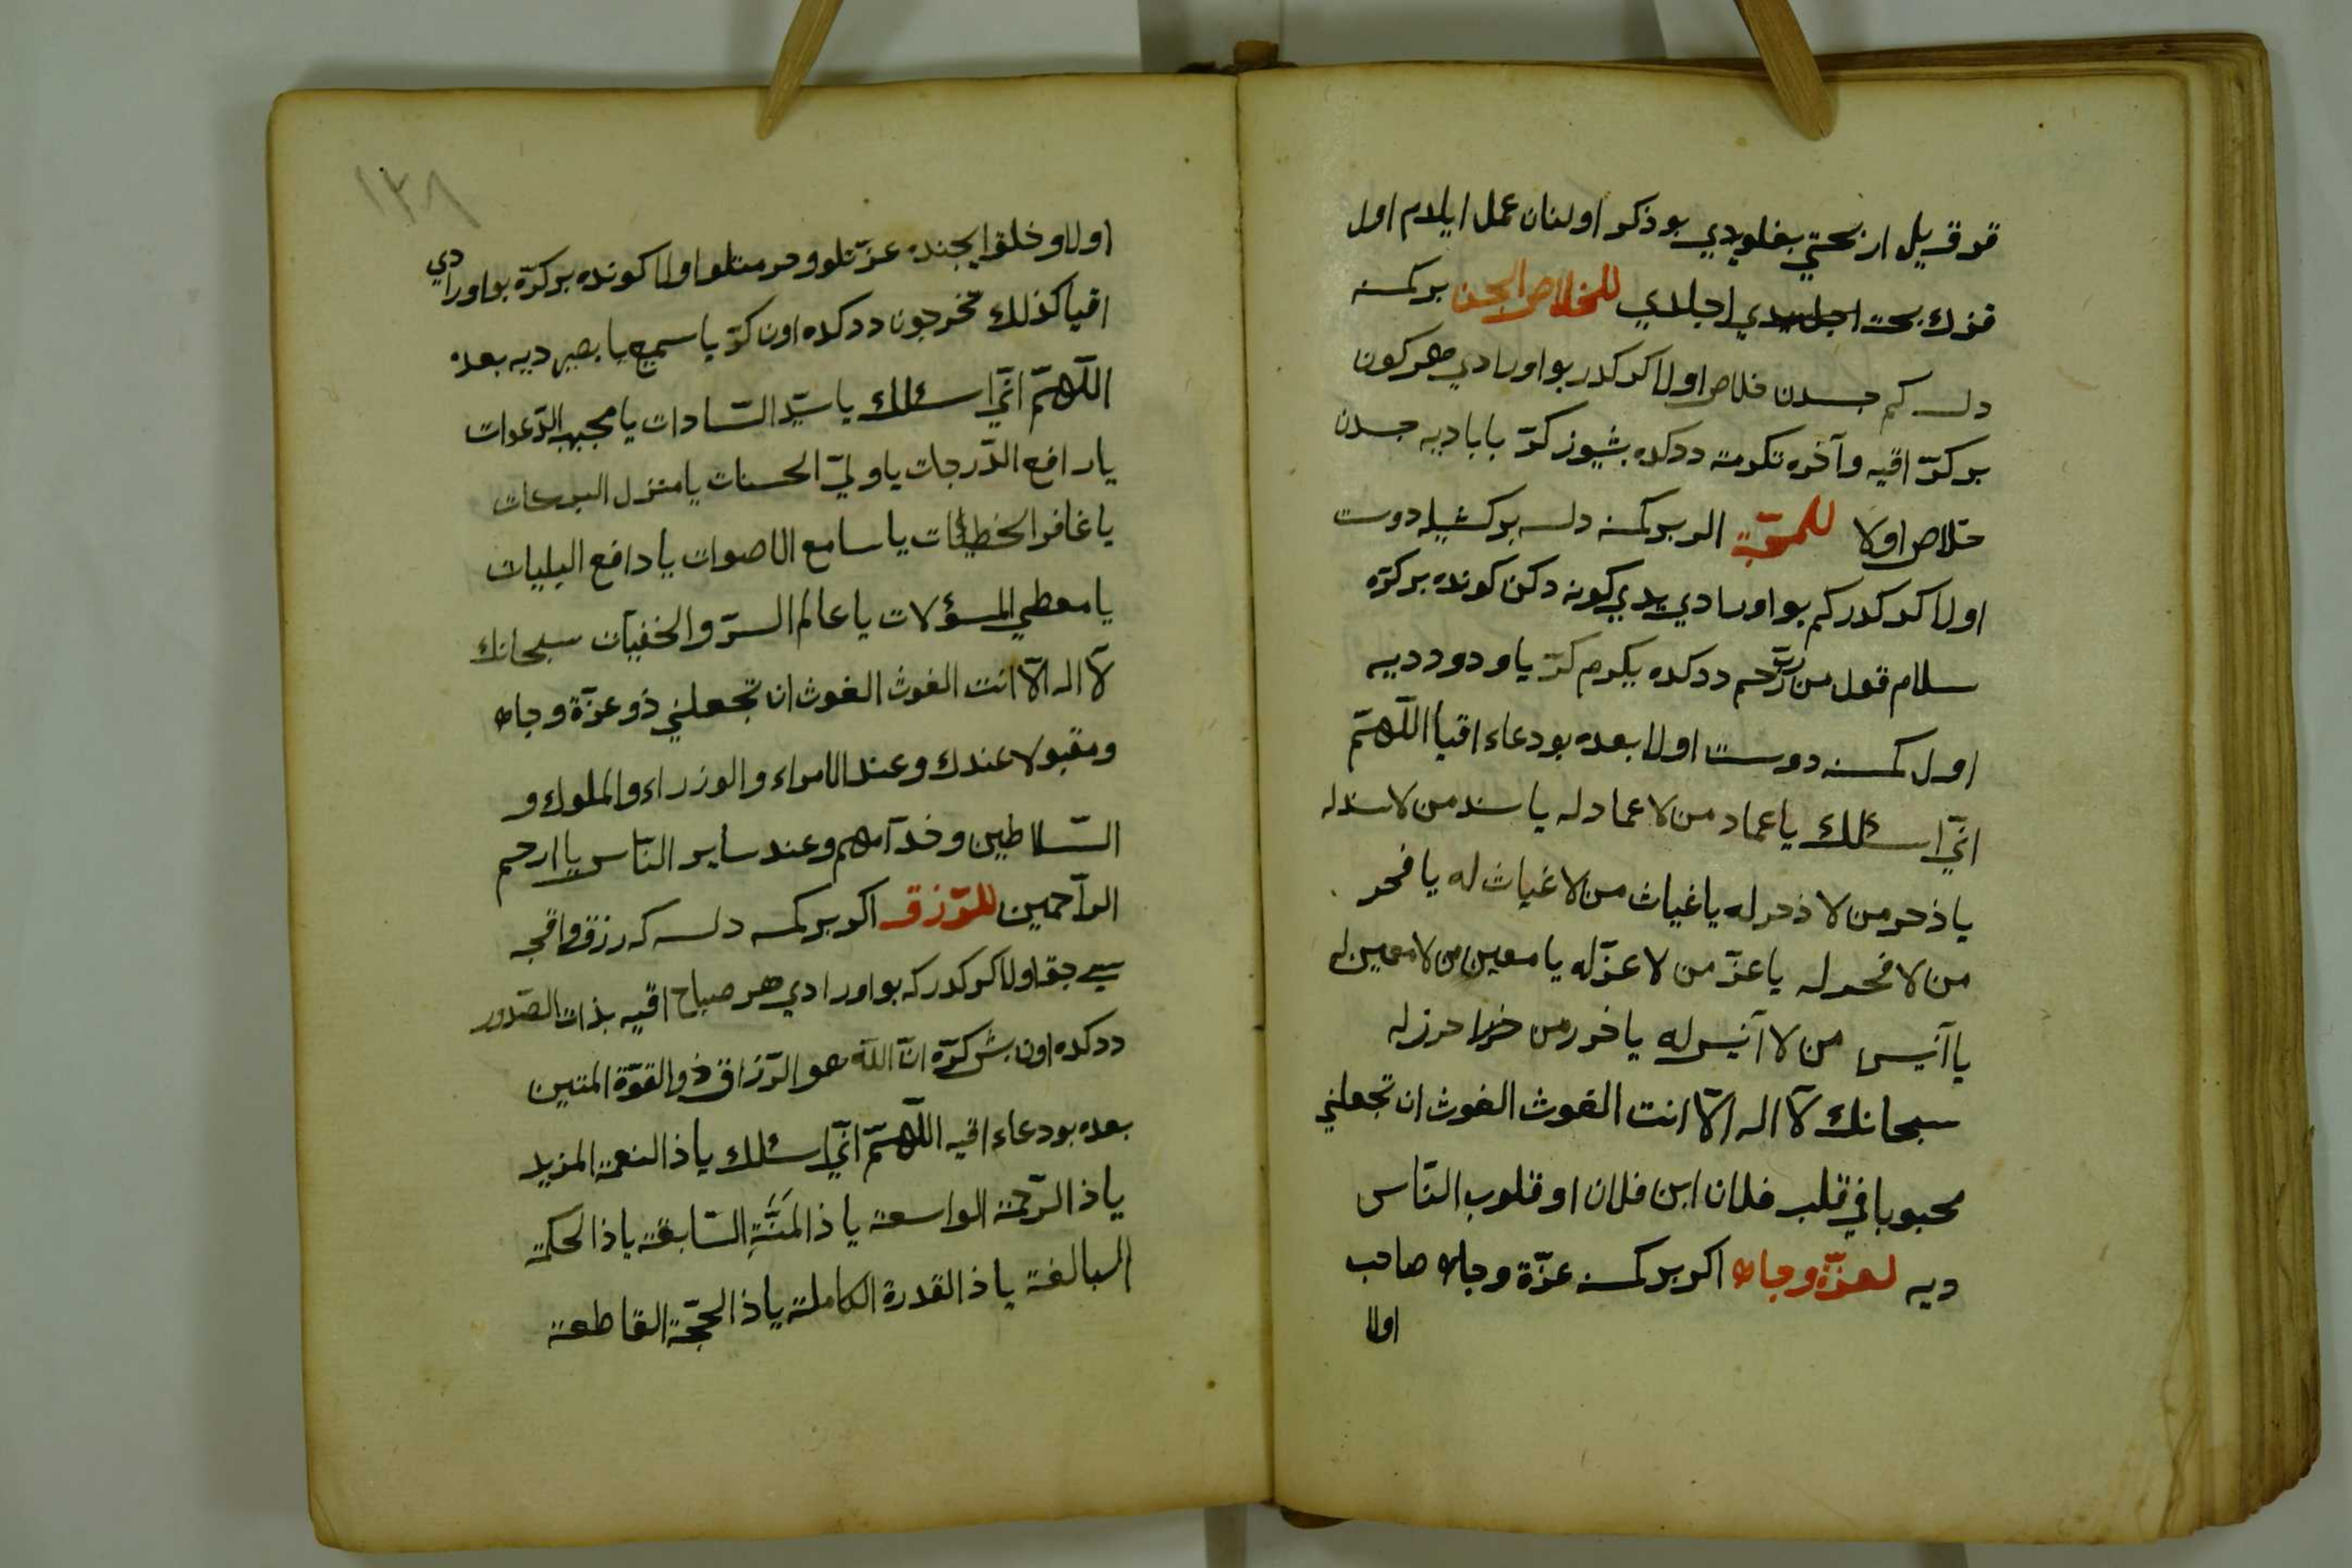 قرق ييل ار بختي بغلويدي بو ذكر اولنان عمل ايلدم اول
قزك بخت اجلدي للخلاص الحبس بر كمسنه
دلسه كم حبسدن خلاص اولا كر كدر بو اورادي هر كون
بر كرّ اقيه وآخره نكرمته ددكده بشيوز كرّ بابا ديه حبسدن
خلاص اولا للمحبّة الر بر كمسنه دلسه بر كشيله دوست
اولا كر كدر كم بو اورادي يدي كونه دكن كونده بر كرّه
سلام قول من ربّ رحيم ددكده يكرم كرّ يا ودود ديه
اول كمسنه دوست اولا بعده بو دعاء اقيا اللّهمّ
انّي اسئلك يا عماد من لا عماد له يا سند من لا سند له
يا ذخر من لا ذخر له يا غياث من لا غياث له يا فخر
من لا فخر له يا عزّ من لا عزّ له يا معين من لا معين له
يا آنيس من لا آنيس له يا حرز من لا حرز له
سبحانك لآ اله الّا انت الغوث الغوث ان تجعلني
محبوبا في قلب فلان ابن فلان او قلوب النّاس
ديه لعزّة وجاه اكر بر كمسنه عزّة وجاه صاحب
اولا
١٣٨
اولا و خلق ايجنده عزّتلو و حرمتلو اولا كونده بر كرّه بو اورادي
اقيا كذلك تخرجون ددكده اون كرّ يا سميع يا بصير ديه بعده
اللّهمّ انّي اسئلك يا سيّد السّادات يا مجيب الدّعوات
يا رافع الدّرجات يا وليّ الحسنات يا منزل البركات
يا غافر الخطيئات يا سامع الاصوات يا دافع البليات
يا معطي المسؤلات يا عالم السرّ والخفيّات سبحانك
لآ اله الّا انت الغوث الغوث ان تجعلني ذو عزّة وجاه
ومقبولا عندك وعند الامراء والوزراء والملوك و
السّلاطين وخدّامهم وعند ساير النّاس يا ارحم
الرّاحمين للرّزق اكر بر كمسه دلسه كه رزق و اقجه
سي جق اولا كر كدر كه بو اورادي هر صباح اقيه بذات الصّدور
ددكده اون بش كرّه انّ اللّه هو الرّزاق ذو القوّة المتين
بعده بو دعاء اقيه اللّهمّ انّي اسئلك يا ذا النعمة المزيد
يا ذا الرّحمة الواسعة يا ذا المَنَّةِ السّابقة يا ذا الحكمة
البالغة يا ذا القدرة الكاملة يا ذا الحجّة القاطعة